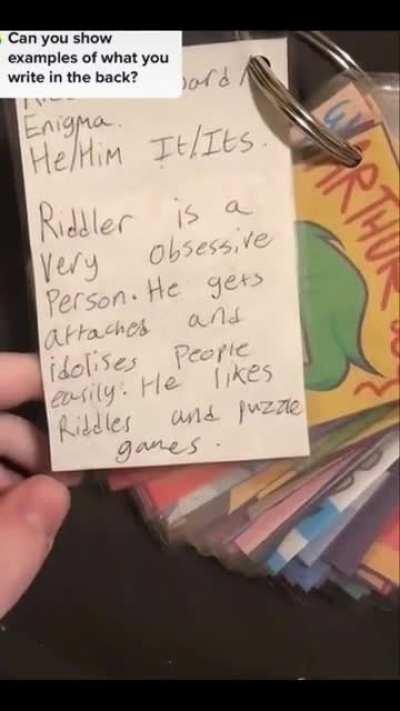 Can you show
examples of what you
write in the back?
Enigma.
He/Him It/Its.
Riddler is a
very obsessive
Person. He gets
attached and
idolises People
easily. He likes
Riddles and puzzle
games.
ARTHUR